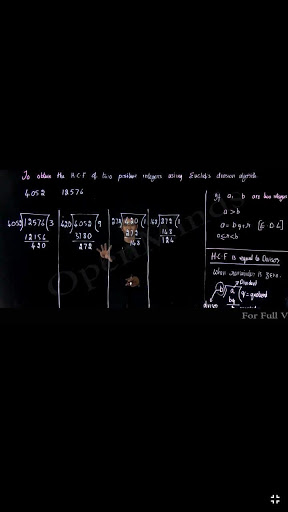 To obtain the H.C.F of two positive integers using Euclid's division algorithm
4052 12576
4052) 12576 (3
12156
420
420) 4052 (9
3780
272
272) 420 (1
272
148
148) 272 (1
148
124
If a, b are two integers
a > b
a = bq + r [E.D.L]
0 ≤ r < b
H.C.F is equal to Divisor
When remainder is zero.
Dividend
b) a (q = quotient
bq
divisor
OpenMind
For Full V